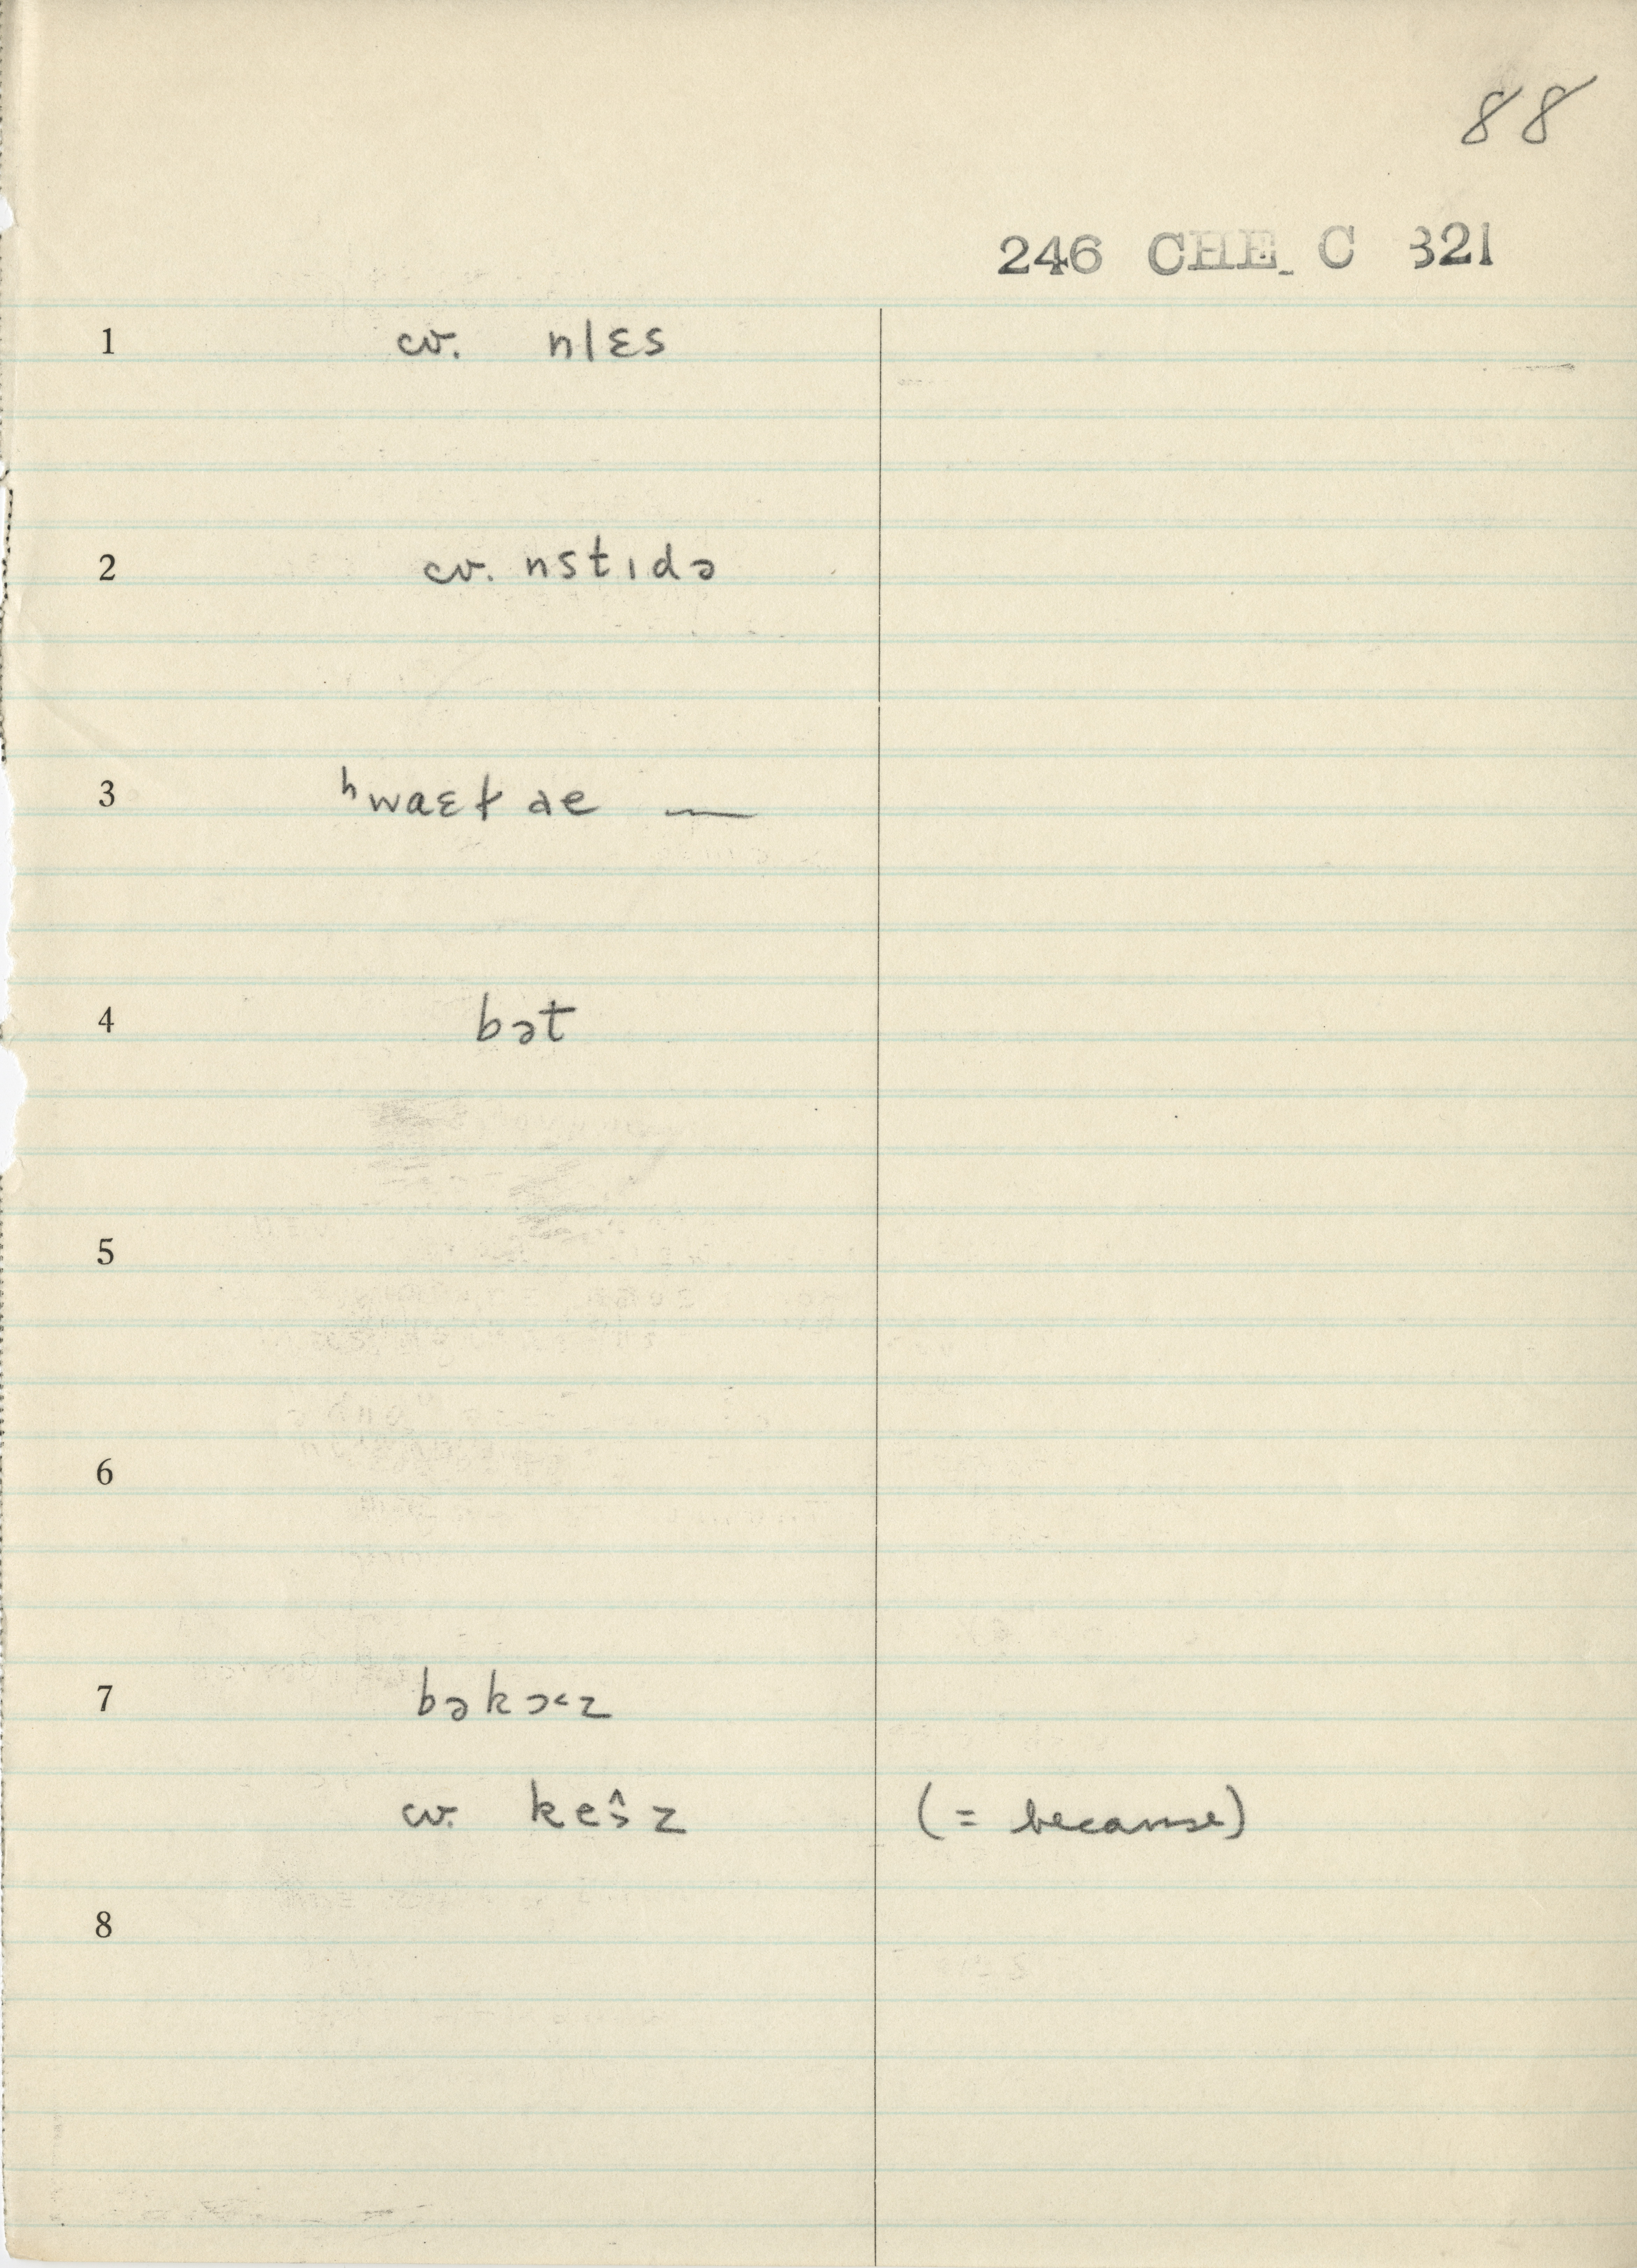 88
246 CHE C 321
1 cv. nlɛs
2 cv. nstɪdə
3 ʰwaɛt ae —
4 bət
5
6
7 bəkɔ˂z
cv. keˆɜz (= because)
8